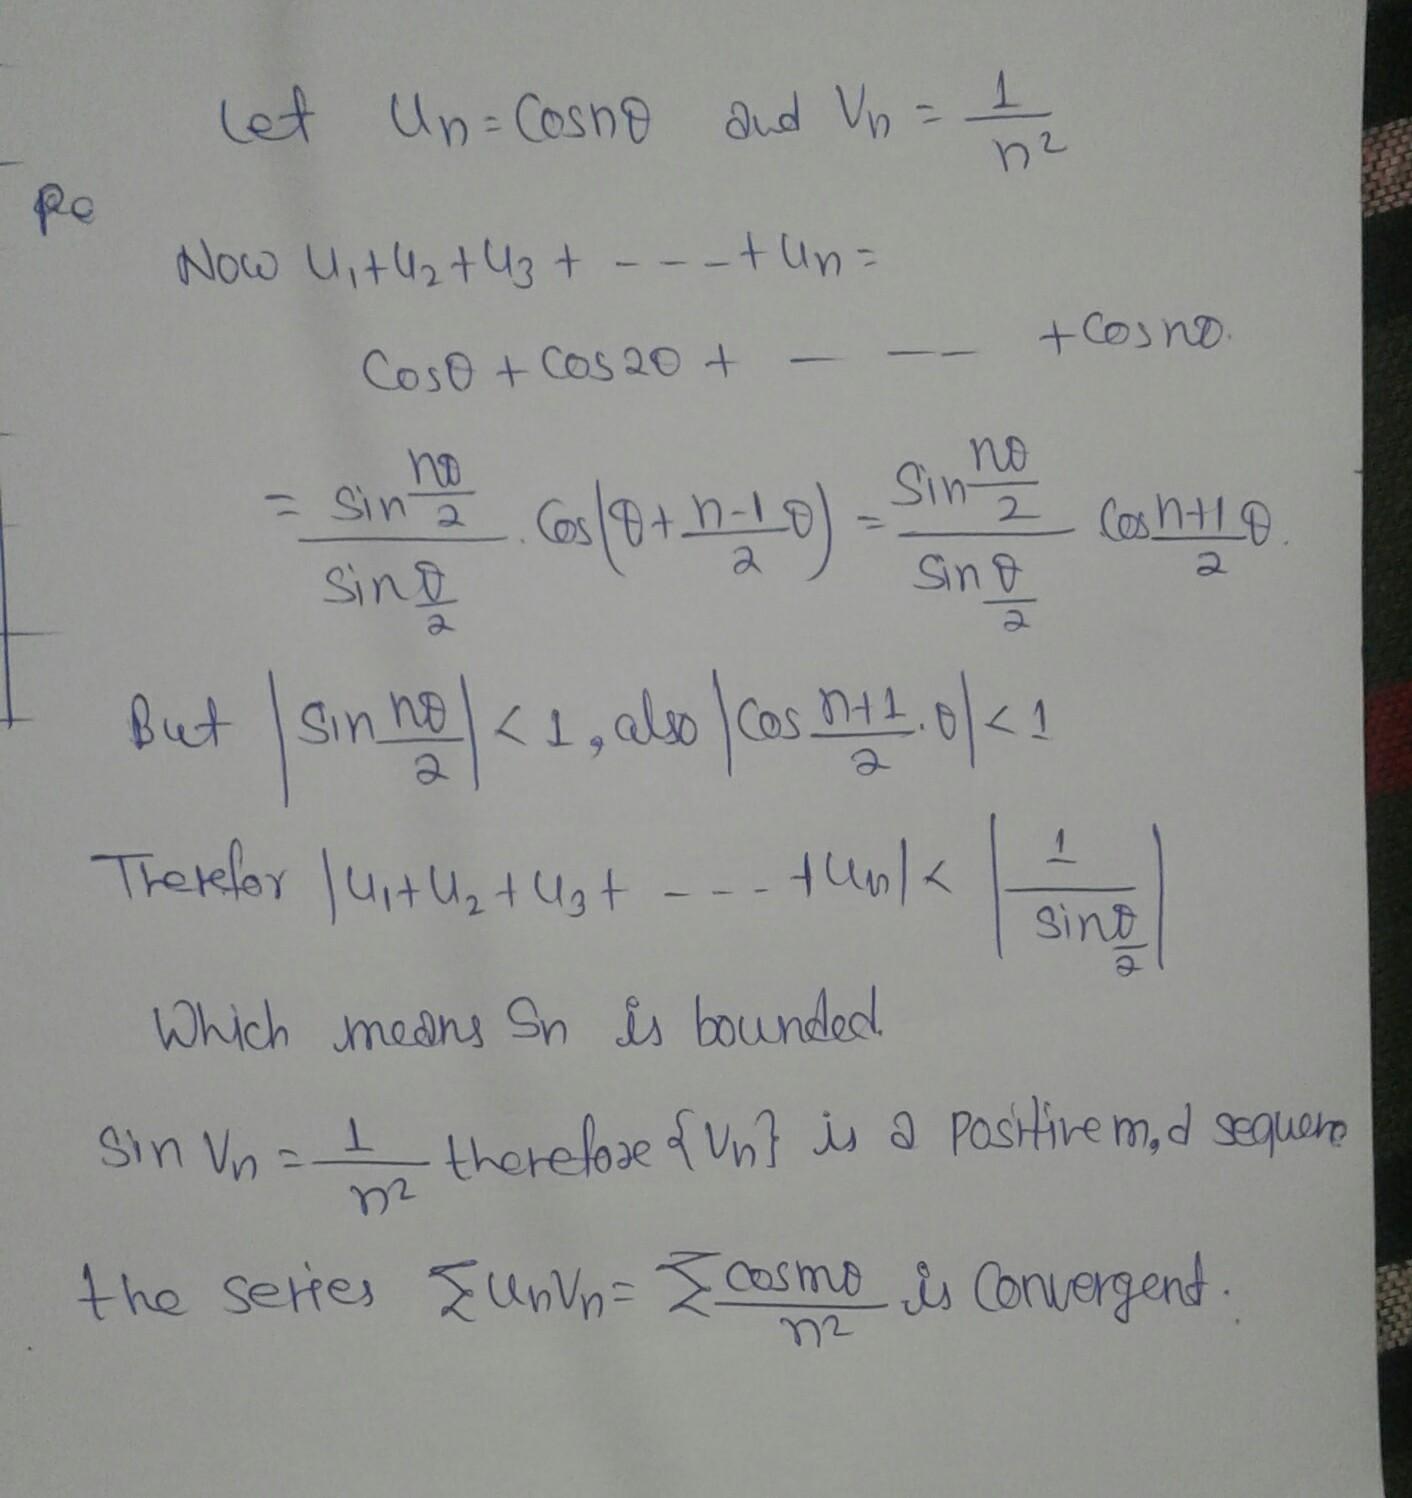 Let Un = Cosnθ and Vn = 1/n²
Re
Now U₁+U₂+U₃+ - - - + Un =
Cosθ + Cos2θ + — — — + Cosnθ.
= Sin nθ/2 / Sin θ/2 . Cos(θ + n-1/2 θ) = Sin nθ/2 / Sin θ/2 Cos n+1/2 θ.
But |Sin nθ/2| < 1, also |Cos n+1/2 . θ| < 1
Therefor |U₁+U₂+U₃+ - - - + Un| < |1 / Sin θ/2|
Which means Sn is bounded.
Sin Vn = 1/n² therefore {Vn} is a Positive m,d sequenc
the series ΣUnVn = Σ cosmθ/n² is Convergent.